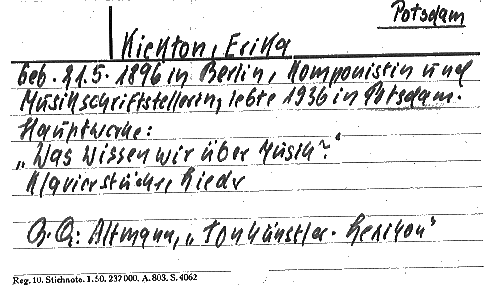 Potsdam
Kickton, Erika
geb. 21.5. 1896 in Berlin, Komponistin und
Musikschriftstellerin, lebte 1936 in Potsdam.
Hauptwerke:
„Was wissen wir über Musik?“
Klavierstücke, Lieder
B. Q: Altmann, „Tonkünstler-Lexikon“
Reg. 10. Stichnote. 1.50. 237000. A. 803. S. 4062